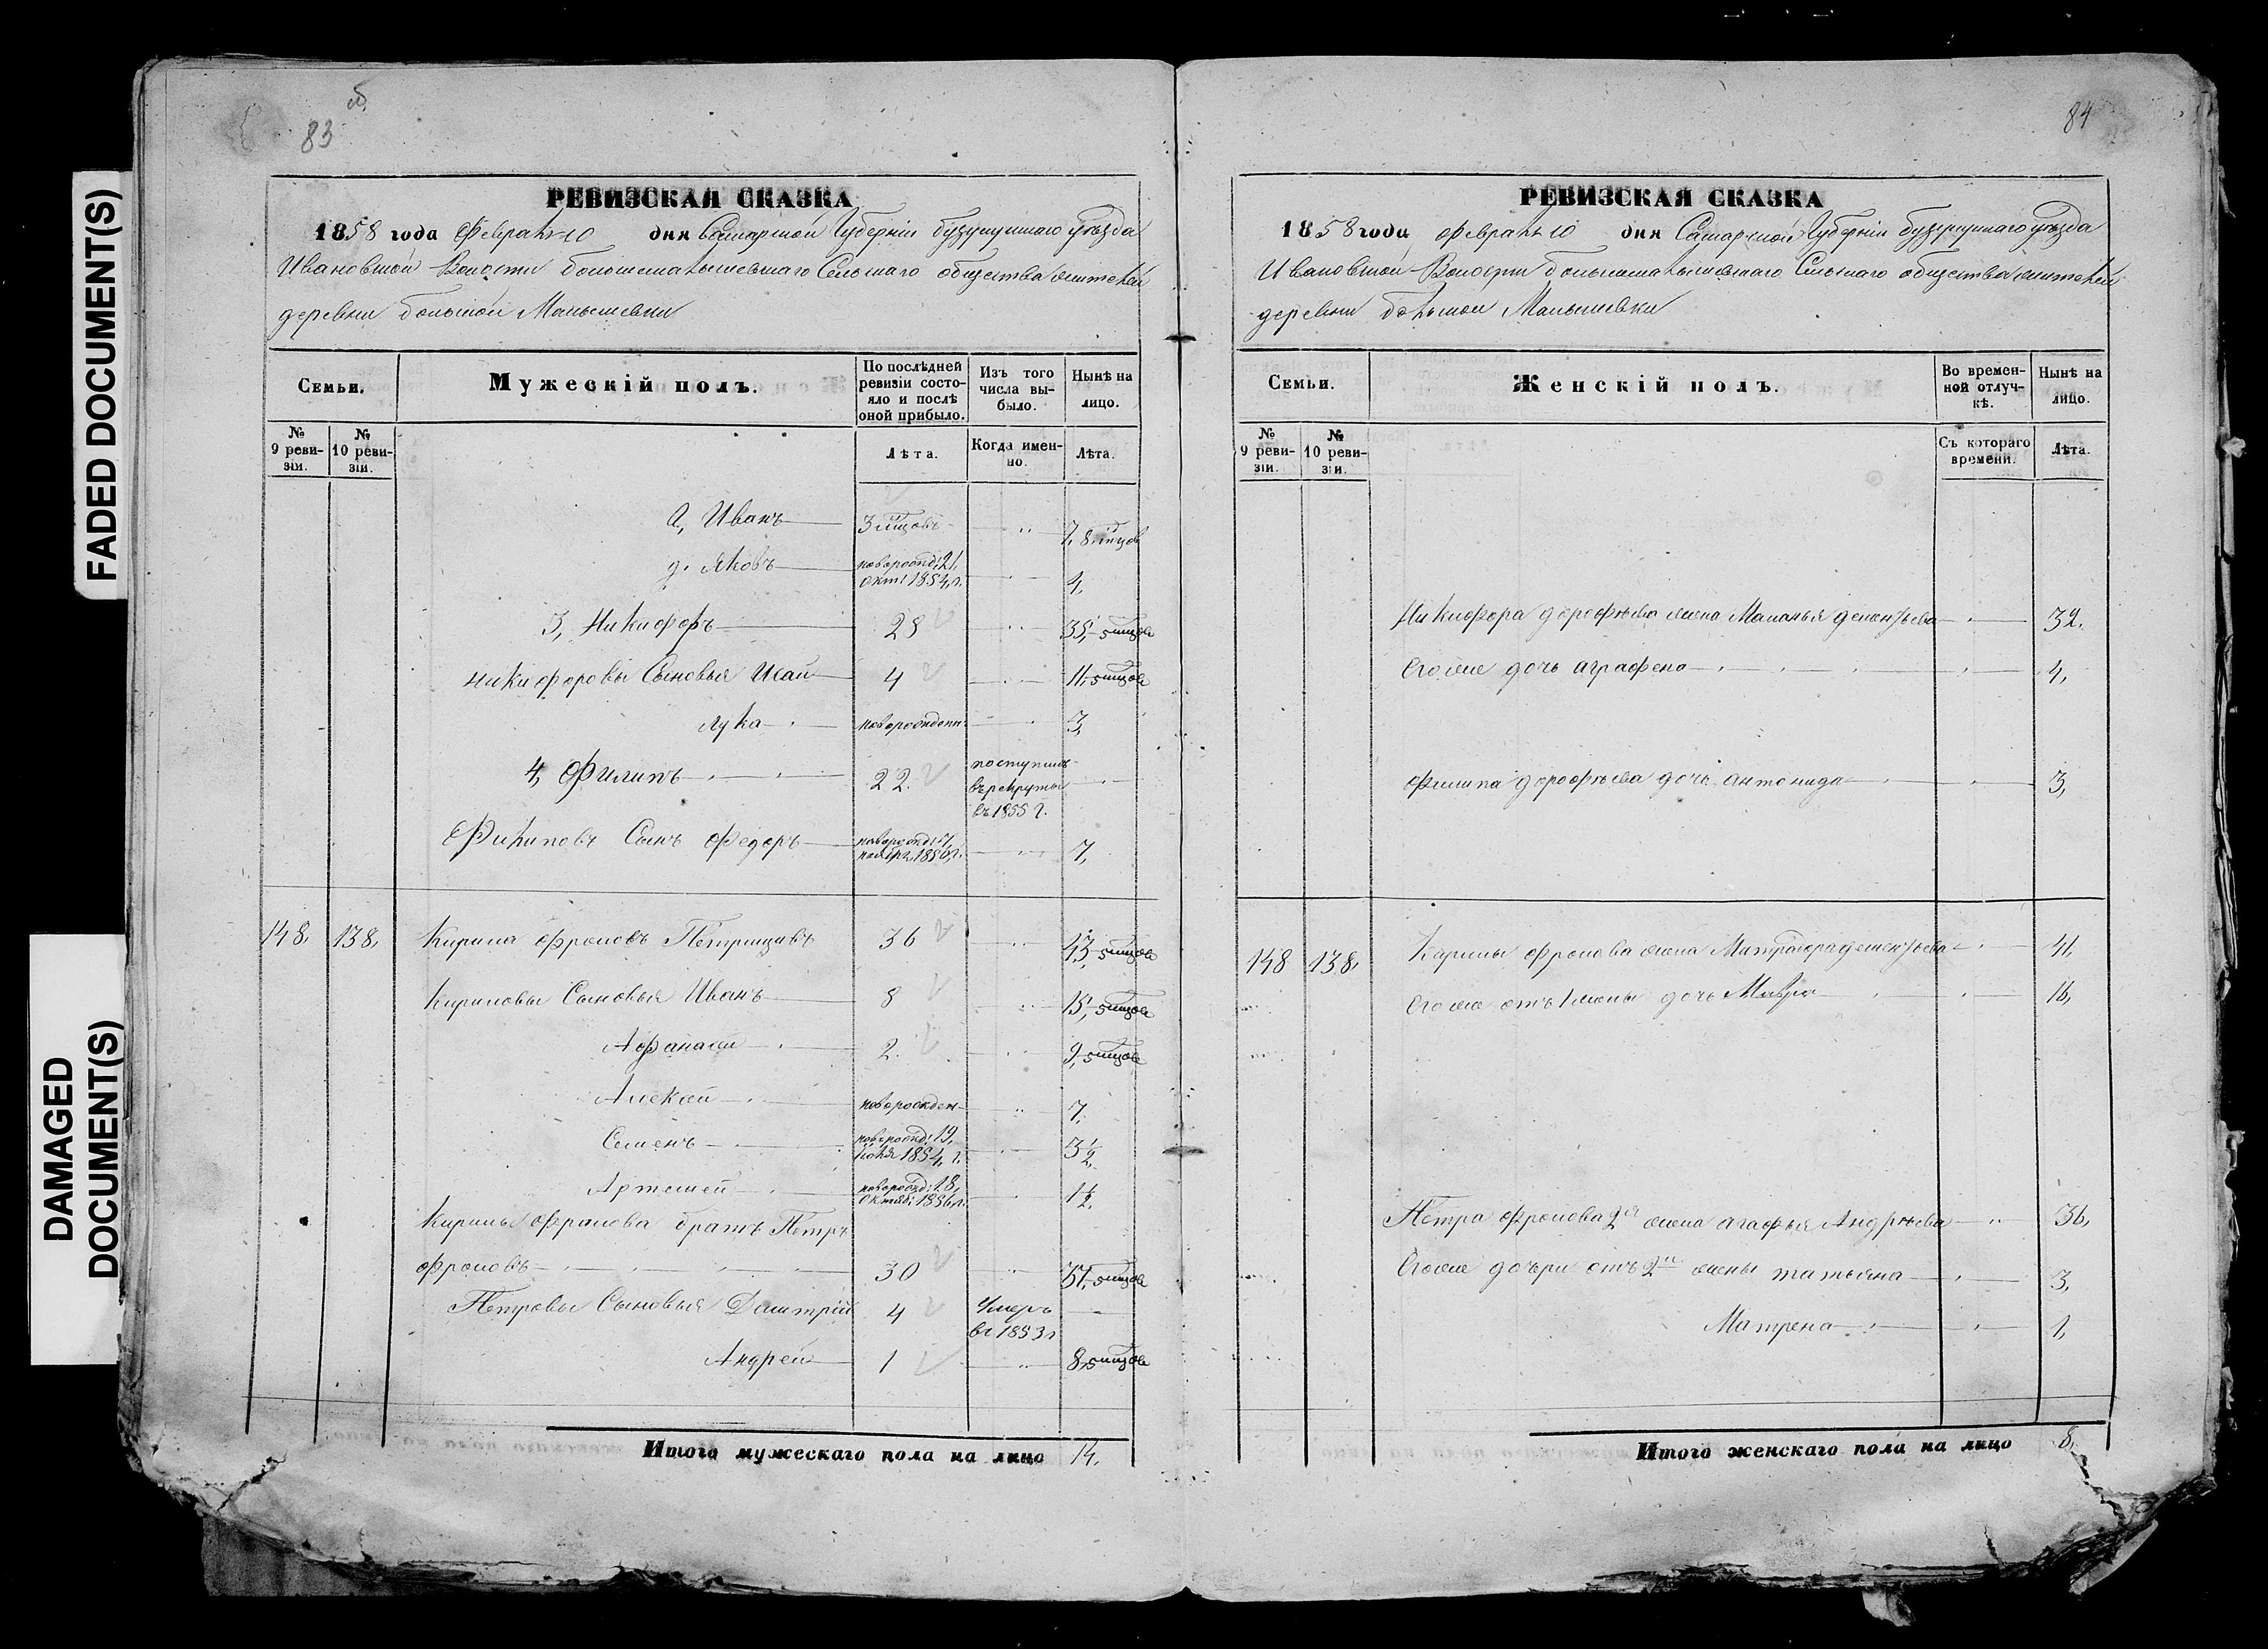 FADED DOCUMENT(S)
DAMAGED
DOCUMENT(S)
об.
83
РЕВИЗСКАЯ СКАЗКА
1858 года Февраля 10 дня Самарской Губерніи бузулукскаго уѣзда
Ивановской Волости большемалышевскаго Сельскаго общества жителей
деревни большой Малышевки
Семьи.
Мужескій полъ.
По послѣдней ревизіи состояло и послѣ оной прибыло.
Изъ того числа выбыло.
Нынѣ на лицо.
№ 9 ревизіи.
№ 10 ревизіи.
Лѣта.
Когда именно.
Лѣта.
2, Иванъ 3 мѣсцовъ „ 7, 8 мѣсцов
д. Яковъ новорожд: 21, окт: 1854, г. „ 4,
3, Никифоръ 28 „ 35, 5 мѣсцов
Никифоровы Сыновья Исай 4 „ 11, 5 мѣсцов
лука новорожденн „ 3,
4, Филипъ 22. поступилъ въ рекруты въ 1855 г.
Филиповъ Сынъ Федоръ новорожд: ноябр. 1850, г. „ 7,
148, 138, Кирила Фроловъ 36 „ 43, 5 мѣсцов
Кириловы Сыновья Иванъ 8 „ 15, 5 мѣсцов
Афанасій 2. „ 9, 5 мѣсцов
Алексей новорожден „ 7.
Семенъ новорожд: 19, 1854, г. „ 3 1/2.
Артемей новорожд: 18, Октяб: 1856, г. „ 1 1/2.
Кирилы Фролова братъ Петръ
Фроловъ 30 „ 37, 5 мѣсцов
Петровы Сыновья Дмитрій 4 Умеръ въ 1853 г
Андрей 1 „ 8, 5 мѣсцов
Итого мужескаго пола на лицо 14.
84
РЕВИЗСКАЯ СКАЗКА
1858 года февраля 10 дня Самарской Губерніи бузулукскаго уѣзда
Ивановской Волости большемалышевскаго Сельскаго общества жителей
деревни большой Малышевки
Семьи.
Женскій полъ.
Во временной отлучкѣ.
Нынѣ на лицо.
№ 9 ревизіи.
№ 10 ревизіи.
Съ котораго времени.
Лѣта.
Никифора дорофѣева жена Маланья „ 32.
Его же дочь аграфена „ 4,
Филипа дорофѣева дочь антонида „ 3,
148 138, Карилы фролова жена „ 41,
Его же отъ 1 жены дочь Мавра „ 16,
Петра Фролова 2я жена агафья Андрѣева „ 36,
Его же дочери отъ 2й жены татьяна „ 3,
Матрена „ 1,
Итого женскаго пола на лицо 8,